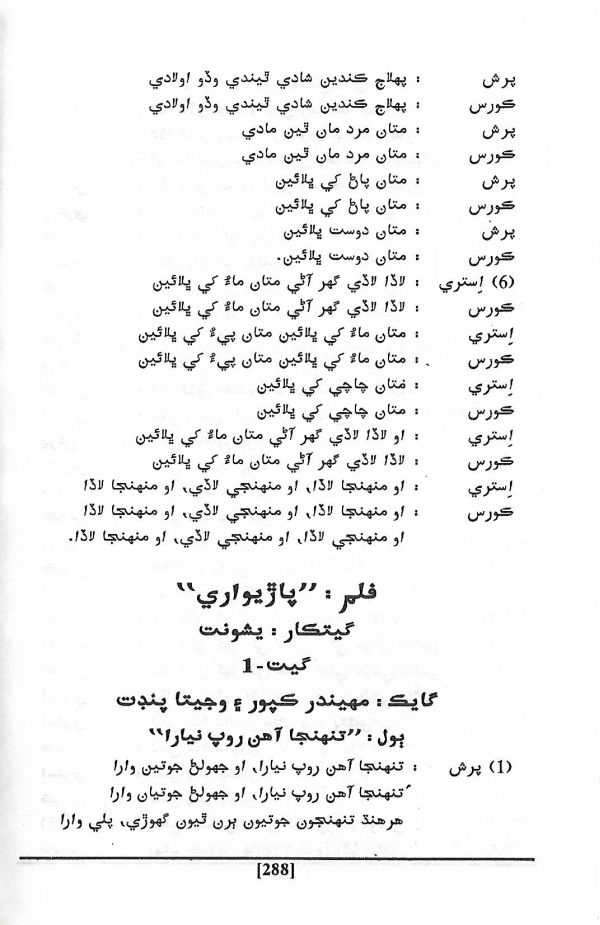 پرش : پهلاج ڪندين شادي ٿيندي وڏو اولادي
ڪورس : پهلاج ڪندين شادي ٿيندي وڏو اولادي
پرش : متان مرد مان ٿين مادي
ڪورس : متان مرد مان ٿين مادي
پرش : متان پاڻ کي ڀلائين
ڪورس : متان پاڻ کي ڀلائين
پرش : متان دوست ڀلائين
ڪورس : متان دوست ڀلائين.
(6) اِستري : لاڏا لاڏي گهر آڻي متان ماءُ کي ڀلائين
ڪورس : لاڏا لاڏي گهر آڻي متان ماءُ کي ڀلائين
اِستري : متان ماءُ کي ڀلائين متان پيءُ کي ڀلائين
ڪورس : متان ماءُ کي ڀلائين متان پيءُ کي ڀلائين
اِستري : متان چاچي کي ڀلائين
ڪورس : متان چاچي کي ڀلائين
اِستري : او لاڏا لاڏي گهر آڻي متان ماءُ کي ڀلائين
ڪورس : لاڏا لاڏي گهر آڻي متان ماءُ کي ڀلائين
اِستري : او منهنجا لاڏا، او منهنجي لاڏي، او منهنجا لاڏا
ڪورس : او منهنجا لاڏا، او منهنجي لاڏي، او منهنجا لاڏا
او منهنجي لاڏا، او منهنجي لاڏي، او منهنجا لاڏا.
فلم : ”پاڙيواري“
گيتڪار : يشونت
گيت-1
گايڪ : مهيندر ڪپور ۽ وجيتا پنڊت
ٻول : ”تنهنجا آهن روپ نيارا“
(1) پرش : تنهنجا آهن روپ نيارا، او جهولڻ جوتين وارا
تنهنجا آهن روپ نيارا، او جهولڻ جوتيان وارا
هرهنڌ تنهنجون جوتيون ٻرن ٿيون گهوڙي، پلي وارا
[288]